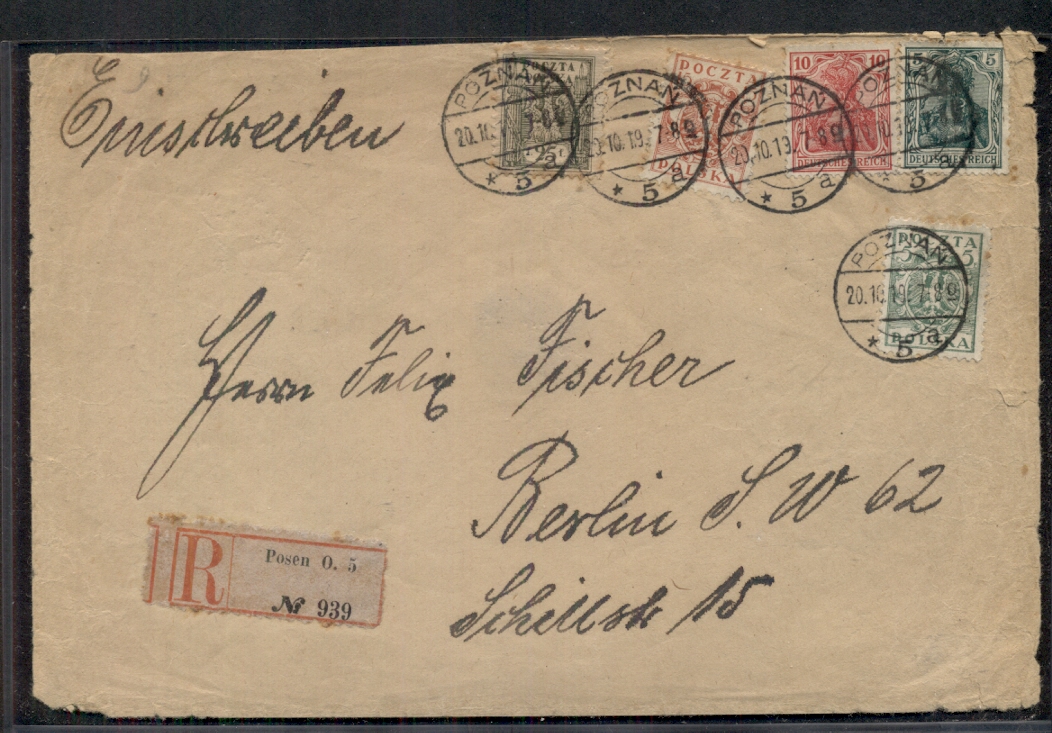 Einschreiben
POCZTA
POLSKA
25
POZNAŃ
20.10.19. 7-8 V
* 5 a
POZNAŃ
20.10.19. 7-8 V
* 5 a
POCZTA
POLSKA
POZNAŃ
20.10.19. 7-8 V
* 5 a
10 10
DEUTSCHES REICH
POZNAŃ
* 5 a
5 5
DEUTSCHES REICH
POCZTA
5 5
POLSKA
POZNAŃ
20.10.19. 7-8 V
* 5 a
Herrn Felix Fischer
Berlin S. W 62
Schillstr 15
R Posen O. 5
№ 939